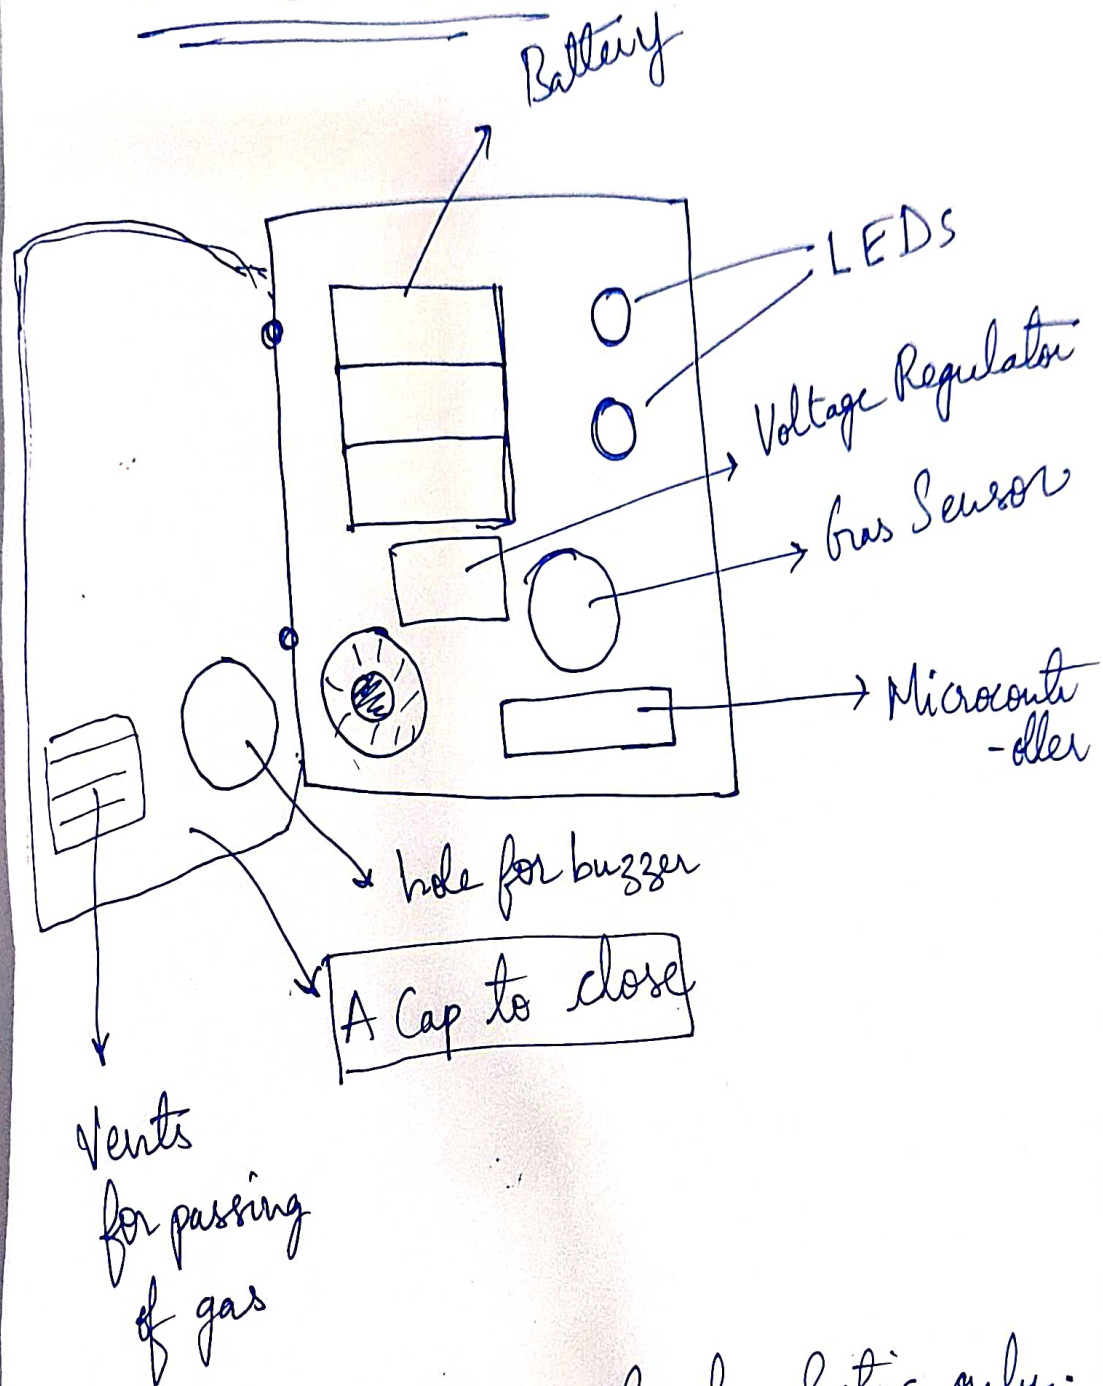 Battery
LEDs
Voltage Regulator
Gas Sensor
Microcontr
-oller
hole for buzzer
A Cap to close
Vents
for passing
of gas
only.